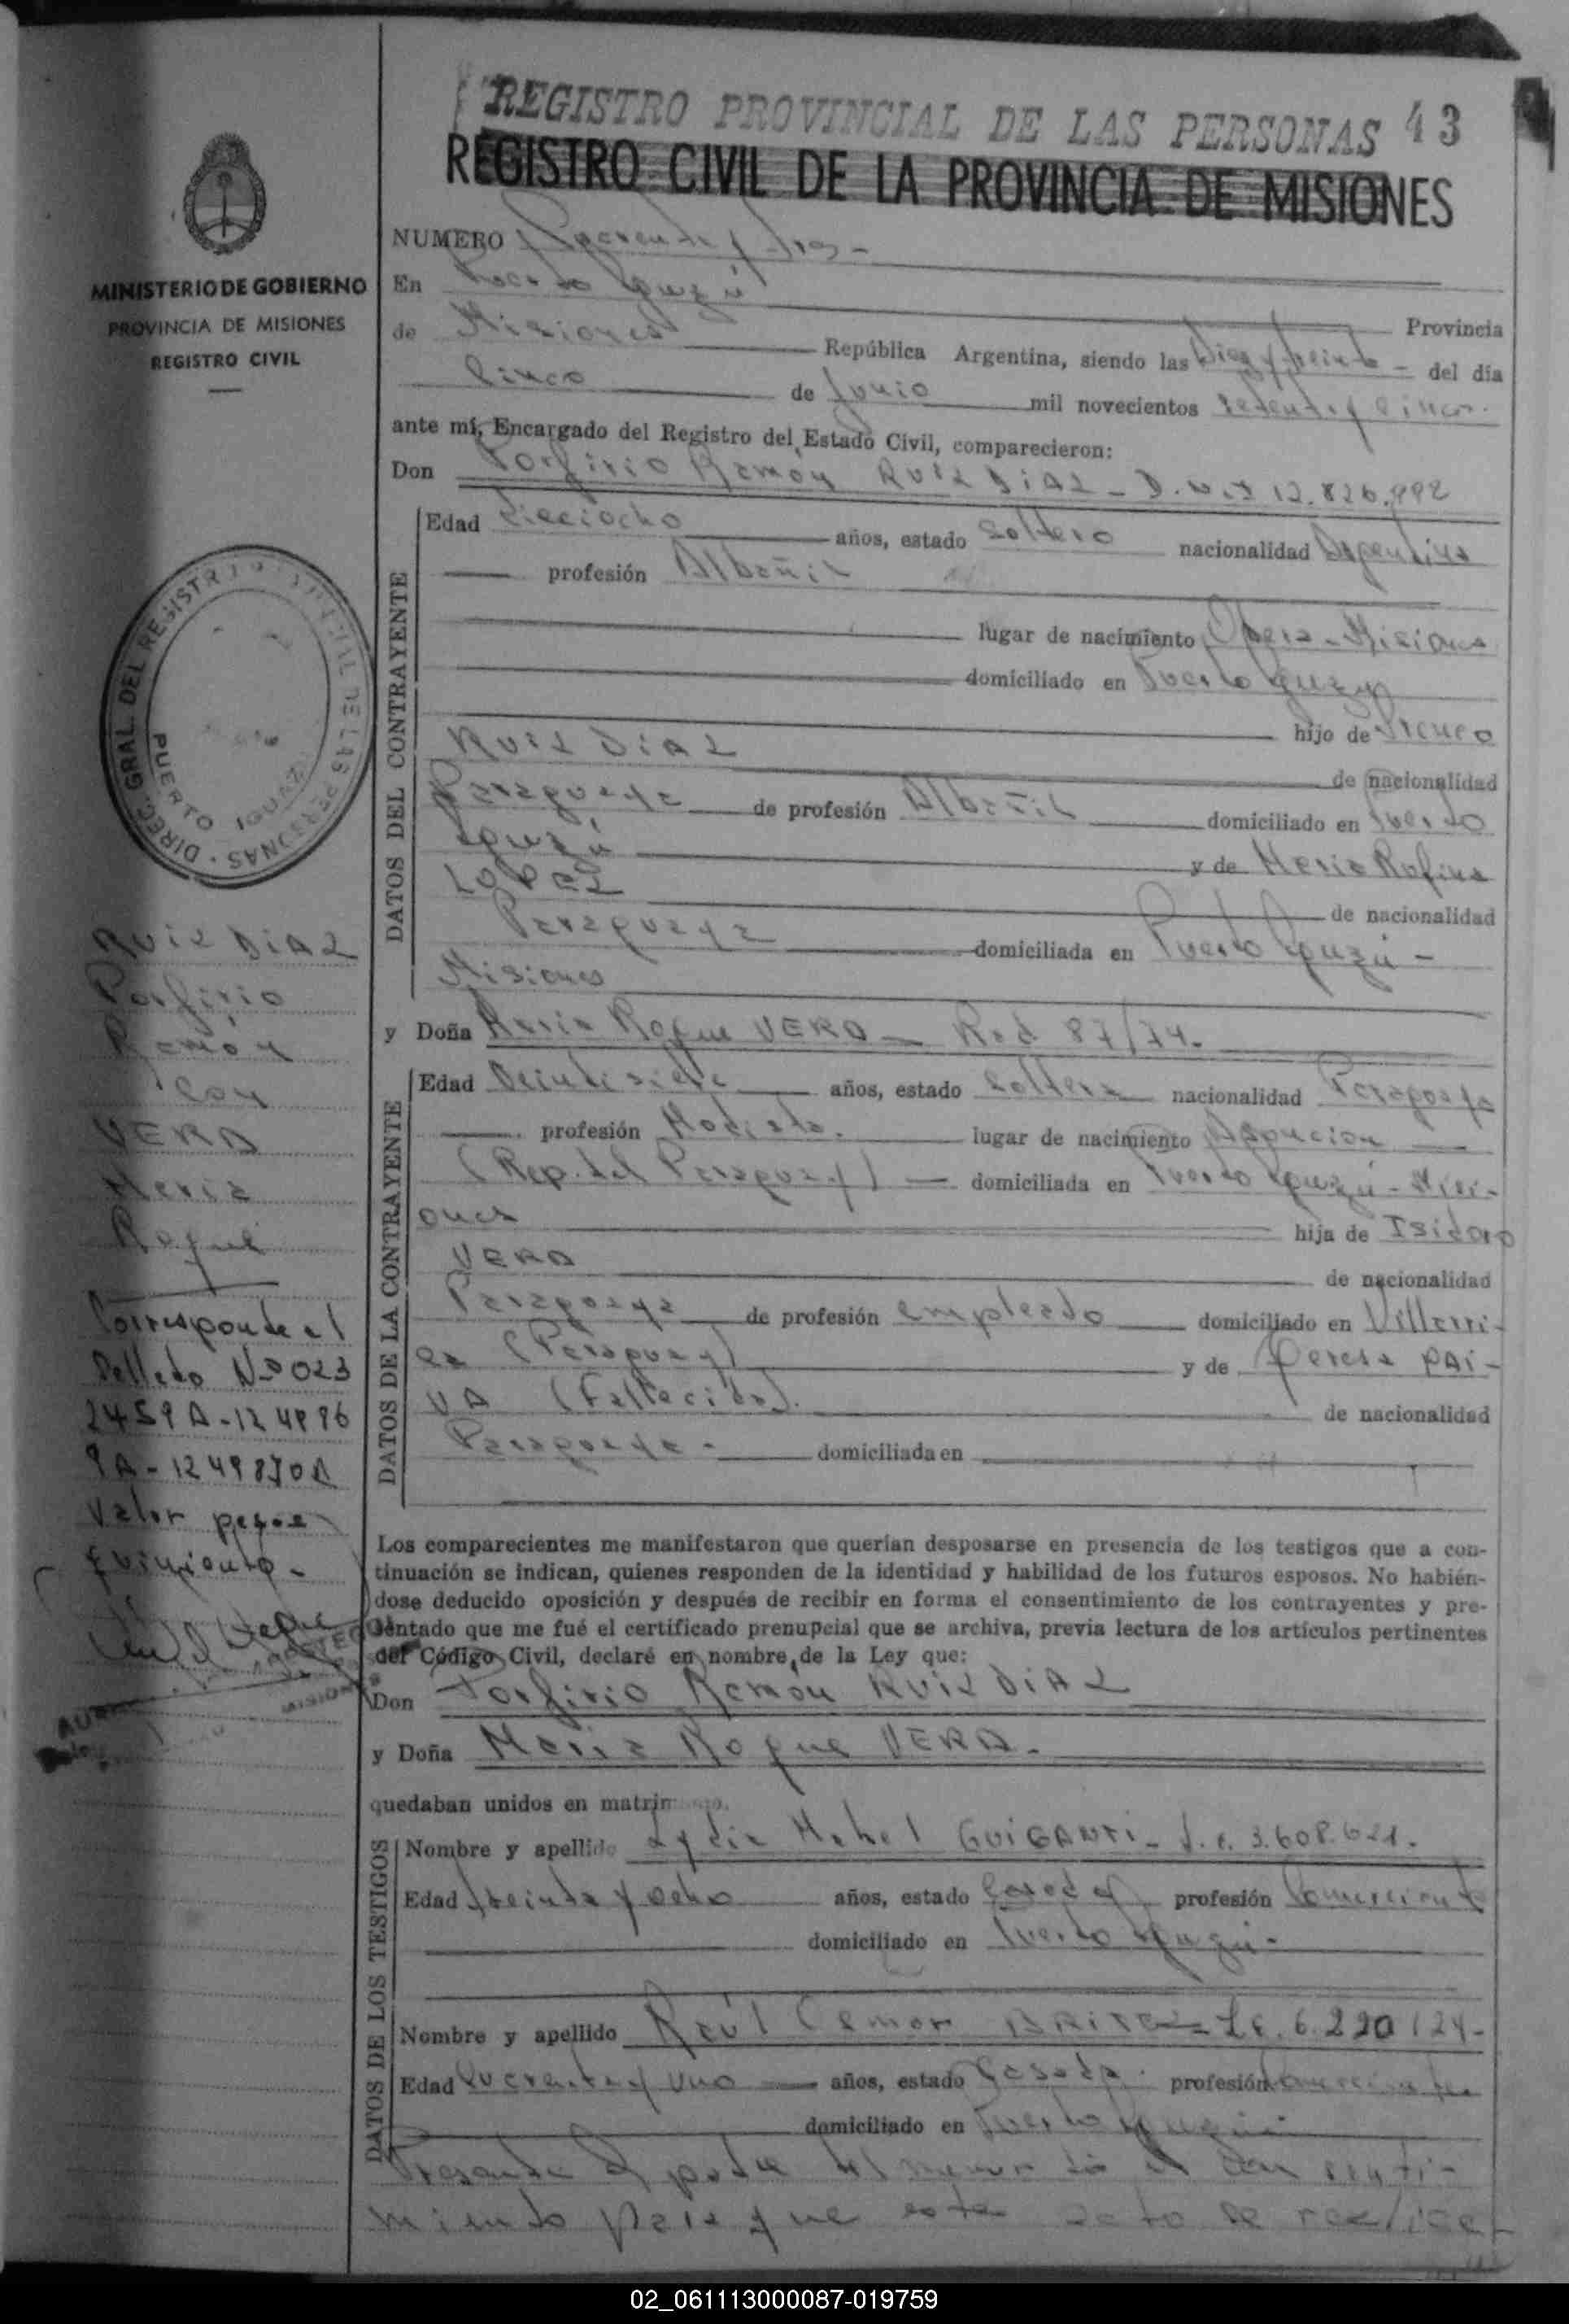 REGISTRO PROVINCIAL DE LAS PERSONAS 43
REGISTRO CIVIL DE LA PROVINCIA DE MISIONES
MINISTERIO DE GOBIERNO
PROVINCIA DE MISIONES
REGISTRO CIVIL
DIREC. GRAL. DEL REGISTRO PROVINCIAL DE LAS PERSONAS
PUERTO IGUAZU
RUIZ DIAZ
Porfirio
Ramón
con
VERA
Maria
Roque
Corresponde al
Sellado Nº 023
2459A-124996
9A-1249870A
Valor pesos
quiniento-
NUMERO Cuarenta y tres-
En Puerto Iguazú Provincia
de Misiones República Argentina, siendo las Diez y treinta - del día
Cinco de Junio mil novecientos setenta y cinco-
ante mí, Encargado del Registro del Estado Civil, comparecieron:
Don Porfirio Ramón RUIZ DIAZ - D.N.I 12.826.992
DATOS DEL CONTRAYENTE
Edad Dieciocho años, estado soltero nacionalidad Argentina
profesión Albañil
lugar de nacimiento Obera - Misiones
domiciliado en Puerto Iguazú
hijo de Ireneo
RUIZ DIAZ de nacionalidad
Paraguaya de profesión Albañil domiciliado en Puerto
Iguazú y de Maria Rufina
LOPEZ de nacionalidad
Paraguaya domiciliada en Puerto Iguazú -
Misiones
y Doña Maria Roque VERA - Rad 87/74.
DATOS DE LA CONTRAYENTE
Edad Veintisiete años, estado soltera nacionalidad Paraguaya
profesión Modista. lugar de nacimiento Asuncion
(Rep. del Paraguay) domiciliada en Puerto Iguazú - Misi-
ones hija de Isidoro
VERA de nacionalidad
Paraguaya de profesión empleado domiciliado en Villarri-
ca (Paraguay) y de Teresa PAI-
VA (Fallecida). de nacionalidad
Paraguaya - domiciliada en
Los comparecientes me manifestaron que querían desposarse en presencia de los testigos que a con-
tinuación se indican, quienes responden de la identidad y habilidad de los futuros esposos. No habién-
dose deducido oposición y después de recibir en forma el consentimiento de los contrayentes y pre-
sentado que me fué el certificado prenupcial que se archiva, previa lectura de los artículos pertinentes
del Código Civil, declaré en nombre de la Ley que:
Don Porfirio Ramón RUIZ DIAZ
y Doña Maria Roque VERA -
quedaban unidos en matrimonio.
DATOS DE LOS TESTIGOS
Nombre y apellido Lydia Mabel GUIGANTI - L.C. 3.608.621.
Edad treinta y ocho años, estado Casada profesión Comerciante
domiciliado en Puerto Iguazú -
Nombre y apellido Raúl BRITEZ - L.E. 6.220124-
Edad Cuarenta y uno años, estado Casado profesión Comerciante
domiciliado en Puerto Iguazú
Presente el padre del menor da el consenti-
miento para que este acto se realice-
02_061113000087-019759